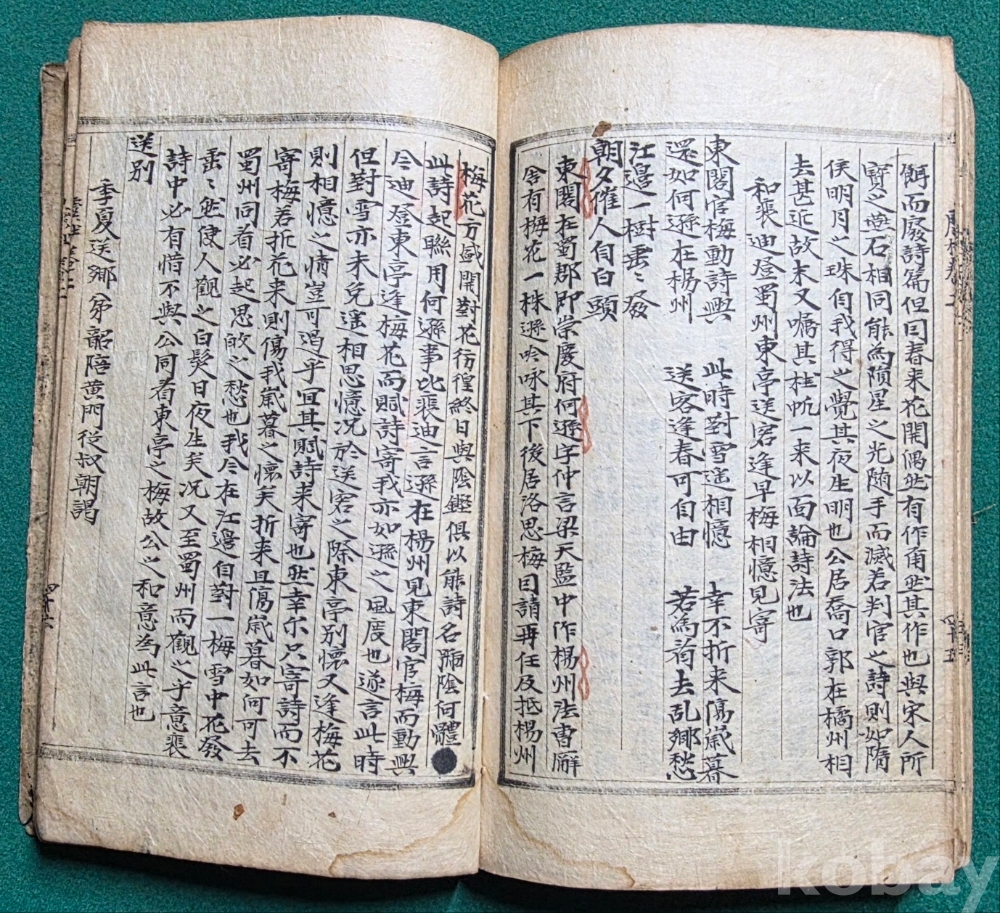 餌而廢詩篇但曰春来花開偶然有作甭㽵其作也與宋人所
寶之燕石相同能爲隕星之光随手而滅若判官之詩則如隋
侯明月之珠自我得之覺其夜生明也公居喬口郭在橘州相
去甚近故末又嘱其桂帆一来以面論詩法也
和裴迪登蜀州東亭送客逢早梅相憶見寄
東閣官梅動詩興 此時對雪遙相憶 幸不折来傷歲暮
還如何遜在楊州 送客逢春可自由 若爲看去乱鄉愁
江邉一樹垂〻發
朝夕催人自白頭
東閣在蜀郡即崇慶府何遜字仲言梁天監中作楊州法曹廨
舎有梅花一株遜吟咏其下後居洛思梅因請再任及抵楊州
梅花方盛開對花彷徨終日與陰鏗俱以能詩名號陰何體
此詩起聯用何遜事比裴迪言遜在楊州見東閣官梅而動興
今迪登東亭逢梅花而賦詩寄我亦如遜之風度也遂言此時
但對雪亦未免遙相思憶况於送客之際東亭別懷又逢梅花
則相憶之情豈可遏乎宜其賦詩来寄也然幸尔只寄詩而不
寄梅若折花来則傷我歲暮之懷矣折来且傷歲暮如何可去
蜀州同看必起思故之愁也我今在江邉自對一梅雪中花發
垂〻然使人觀之白髮日夜生矣况又至蜀州而觀之乎意裴
詩中必有惜不與公同看東亭之梅故公之和意為此言也
送別
季夏送鄉弟韶陪黃門從叔朝謁
kobay